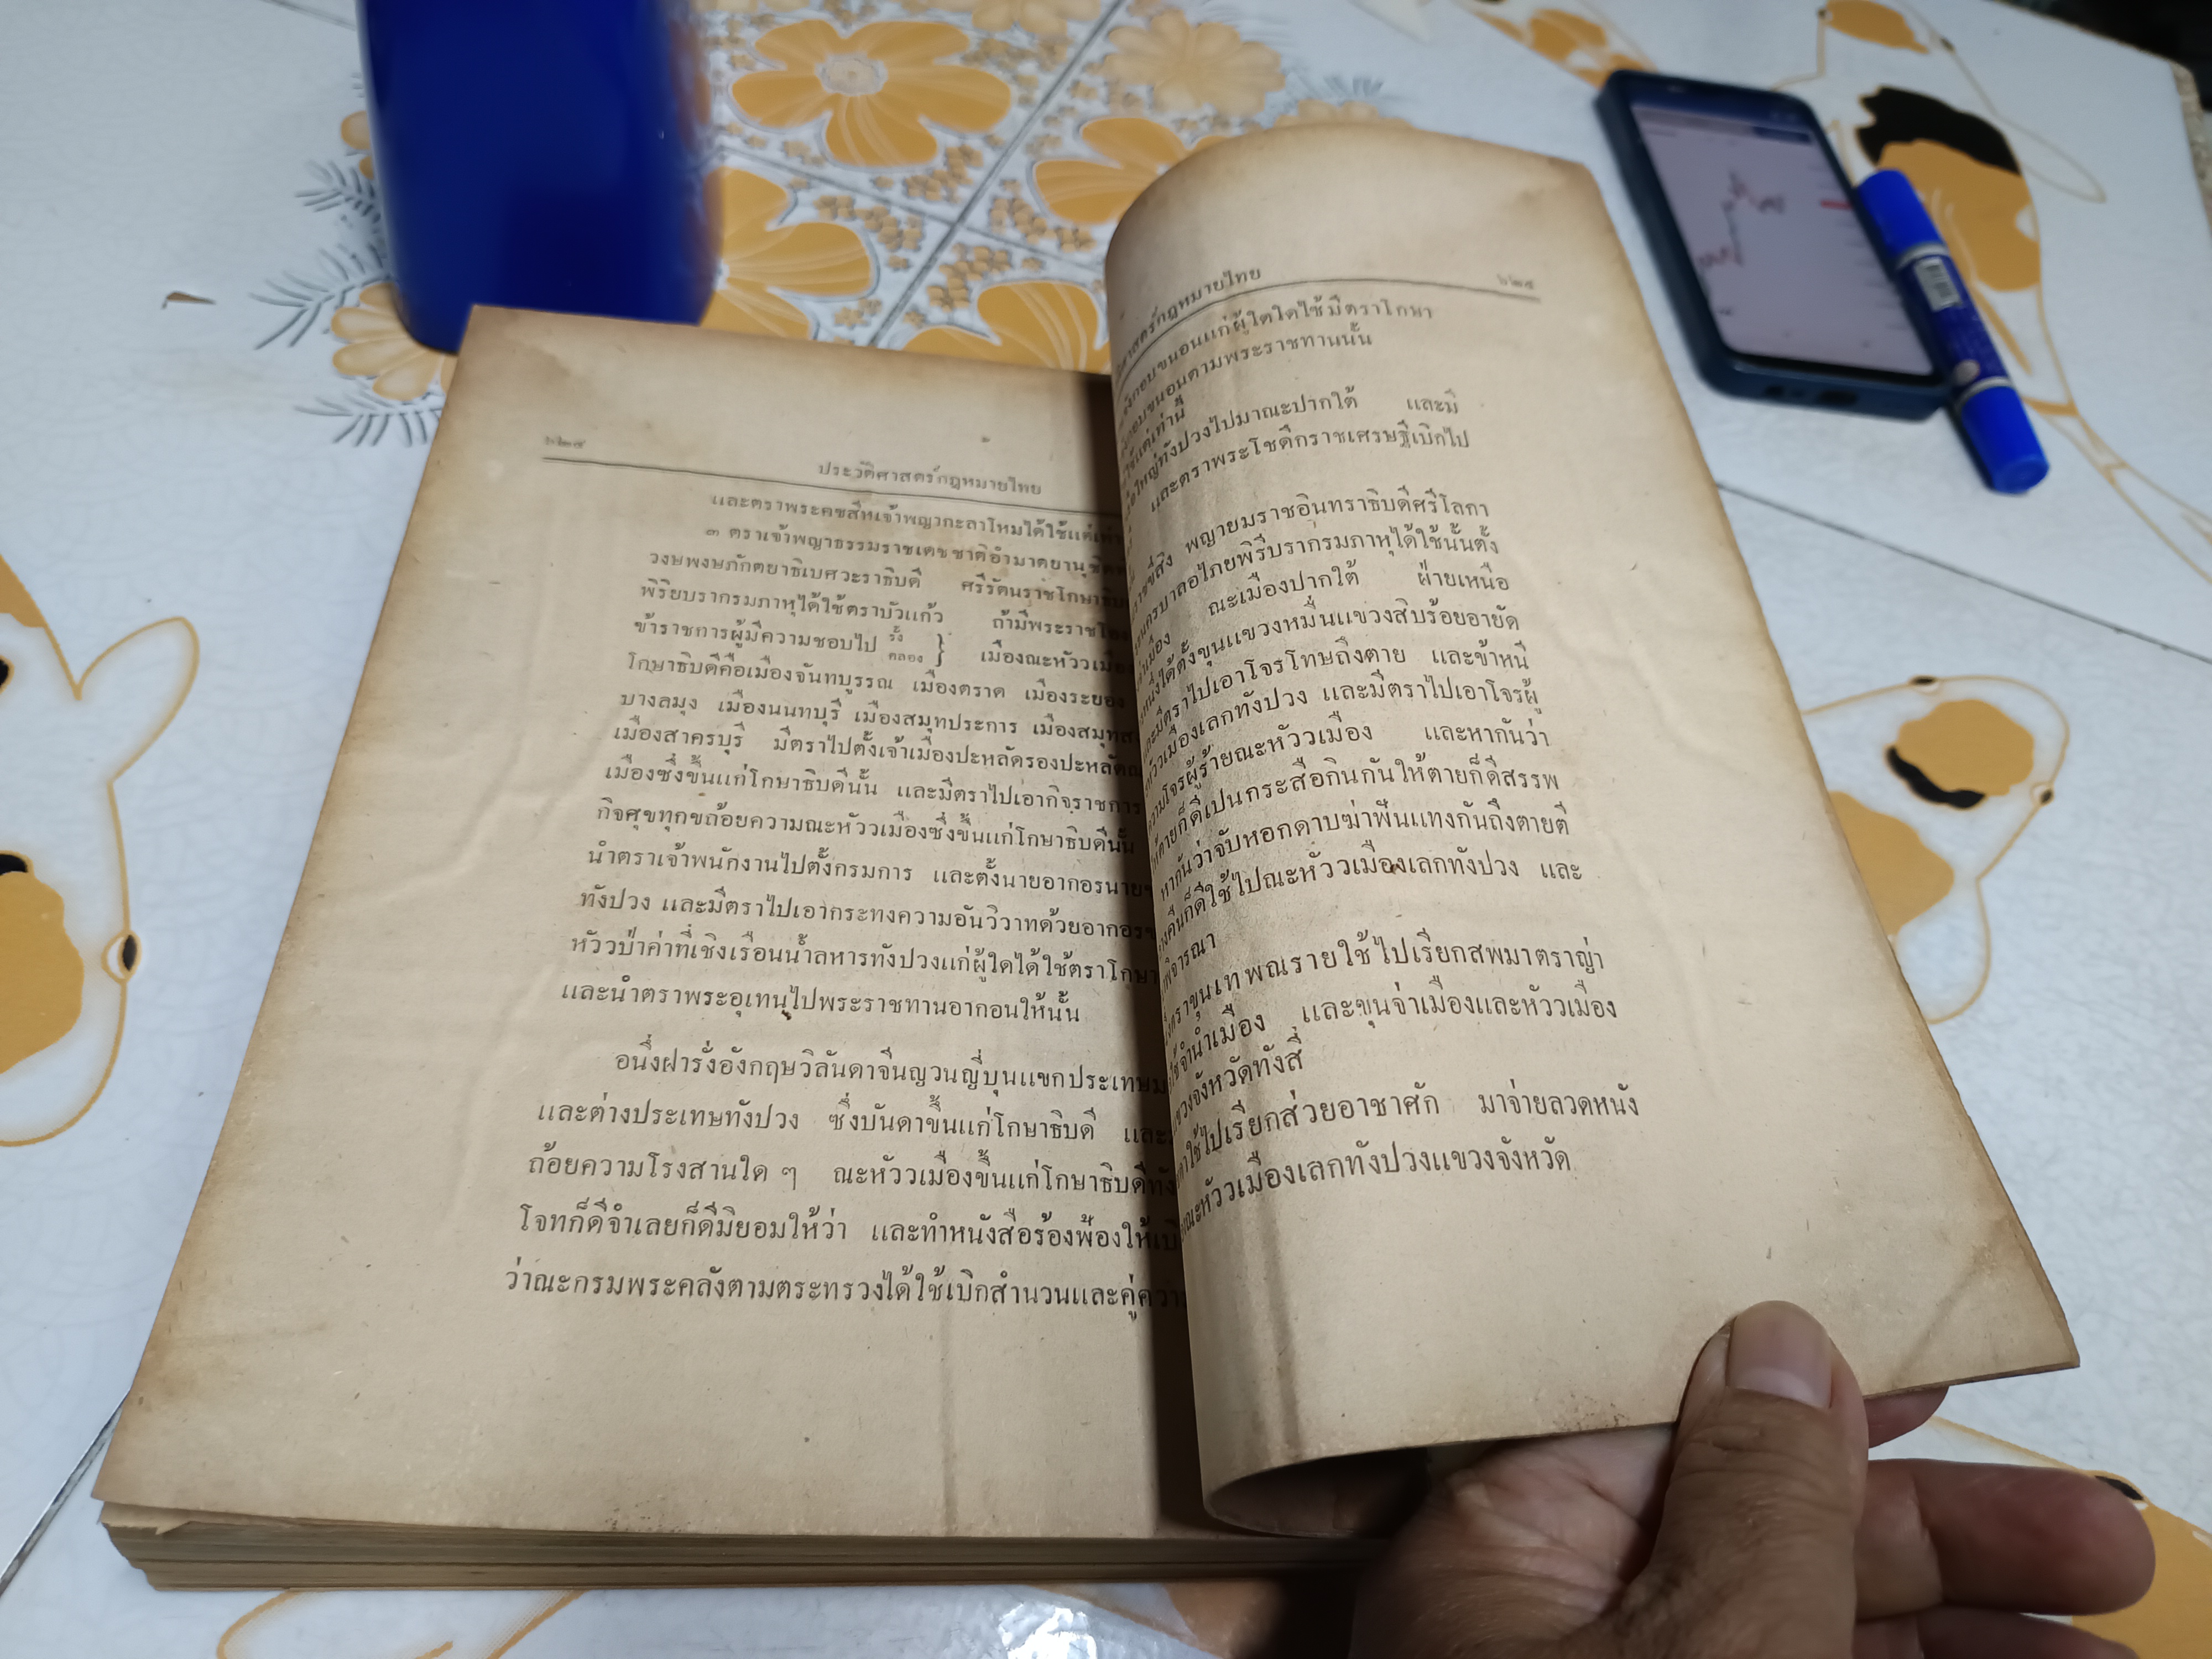 ประวัติศาสตร์กฎหมายไทย
และตราพระคชสีหเจ้าพญากะลาโหมได้ใช้แต่เท่า
๓ ตราเจ้าพญาธรรมราชเดชชาติอำมาตยานุชิต
วงษพงษภักตยาธิเบศวะราธิบดี ศรีรัตนราชโกษาธิบ
พิริยบรากรมภาหุได้ใช้ตราบัวแก้ว ถ้ามีพระราชโอง
ข้าราชการผู้มีความชอบไป รั้ง ครอง } เมืองณะหัววเมือง
โกษาธิบดีคือเมืองจันทบูรรณ เมืองตราด เมืองระยอง
บางลมุง เมืองนนทบุรี เมืองสมุทประการ เมืองสมุทส
เมืองสาครบุรี มีตราไปตั้งเจ้าเมืองปะหลัดรองปะหลัดณ
เมืองซึ่งขึ้นแก่โกษาธิบดีนั้น และมีตราไปเอากิจราชการ
กิจศุขทุกขถ้อยความณะหัววเมืองซึ่งขึ้นแก่โกษาธิบดีนั้น
นำตราเจ้าพนักงานไปตั้งกรมการ และตั้งนายอากอรนายข
ทังปวง และมีตราไปเอากระทงความอันวิวาทด้วยอากอรข
หัววป่าค่าที่เชิงเรือนน้ำลหารทังปวงแก่ผู้ใดได้ใช้ตราโกษา
และนำตราพระอุเทนไปพระราชทานอากอนให้นั้น
อนึ่งฝารั่งอังกฤษวิลันดาจีนญวนญี่บุนแขกประเทษม
และต่างประเทษทังปวง ซึ่งบันดาขึ้นแก่โกษาธิบดี และ
ถ้อยความโรงสานใด ๆ ณะหัววเมืองขึ้นแก่โกษาธิบดีทัง
โจทก็ดีจำเลยก็ดีมิยอมให้ว่า และทำหนังสือร้องฟ้องให้เบิ
ว่าณะกรมพระคลังตามตระทรวงได้ใช้เบิกสำนวนและคู่ควา
ศาสตร์กฎหมายไทย ๖๒๕
ขนอนแก่ผู้ใดใดใช้มีตราโกษา
ขนอนตามพระราชทานนั้น
ใช้แต่เท่านี้
ใหญ่ทังปวงไปมาณะปากใต้ และมี
และตราพระโชดึกราชเศรษฐีเบิกไป
ราชสีสิง พญายมราชอินทราธิบดีศรีโลกา
นครบาลอไภยพิรีบรากรมภาหุได้ใช้นั้นตั้ง
เมือง ณะเมืองปากใต้ ฝ่ายเหนือ
หนึ่งได้ตั้งขุนแขวงหมื่นแขวงสิบร้อยอายัด
และมีตราไปเอาโจรโทษถึงตาย และข้าหนี
หัววเมืองเลกทังปวง และมีตราไปเอาโจรผู้
ความโจรผู้ร้ายณะหัววเมือง และหากันว่า
ให้ตายก็ดีเปนกระสือกินกันให้ตายก็ดีสรรพ
หากันว่าจับหอกดาบฆ่าฟันแทงกันถึงตายดี
คืนก็ดีใช้ไปณะหัววเมืองเลกทังปวง และ
พิจารณา
ตราขุนเทพณรายใช้ไปเรียกสพมาตราญ่า
ใช้จำนำเมือง และขุนจ่าเมืองและหัววเมือง
แขวงจังหวัดทังสี่
ใช้ไปเรียกส่วยอาชาศัก มาจ่ายลวดหนัง
ณะหัววเมืองเลกทังปวงแขวงจังหวัด